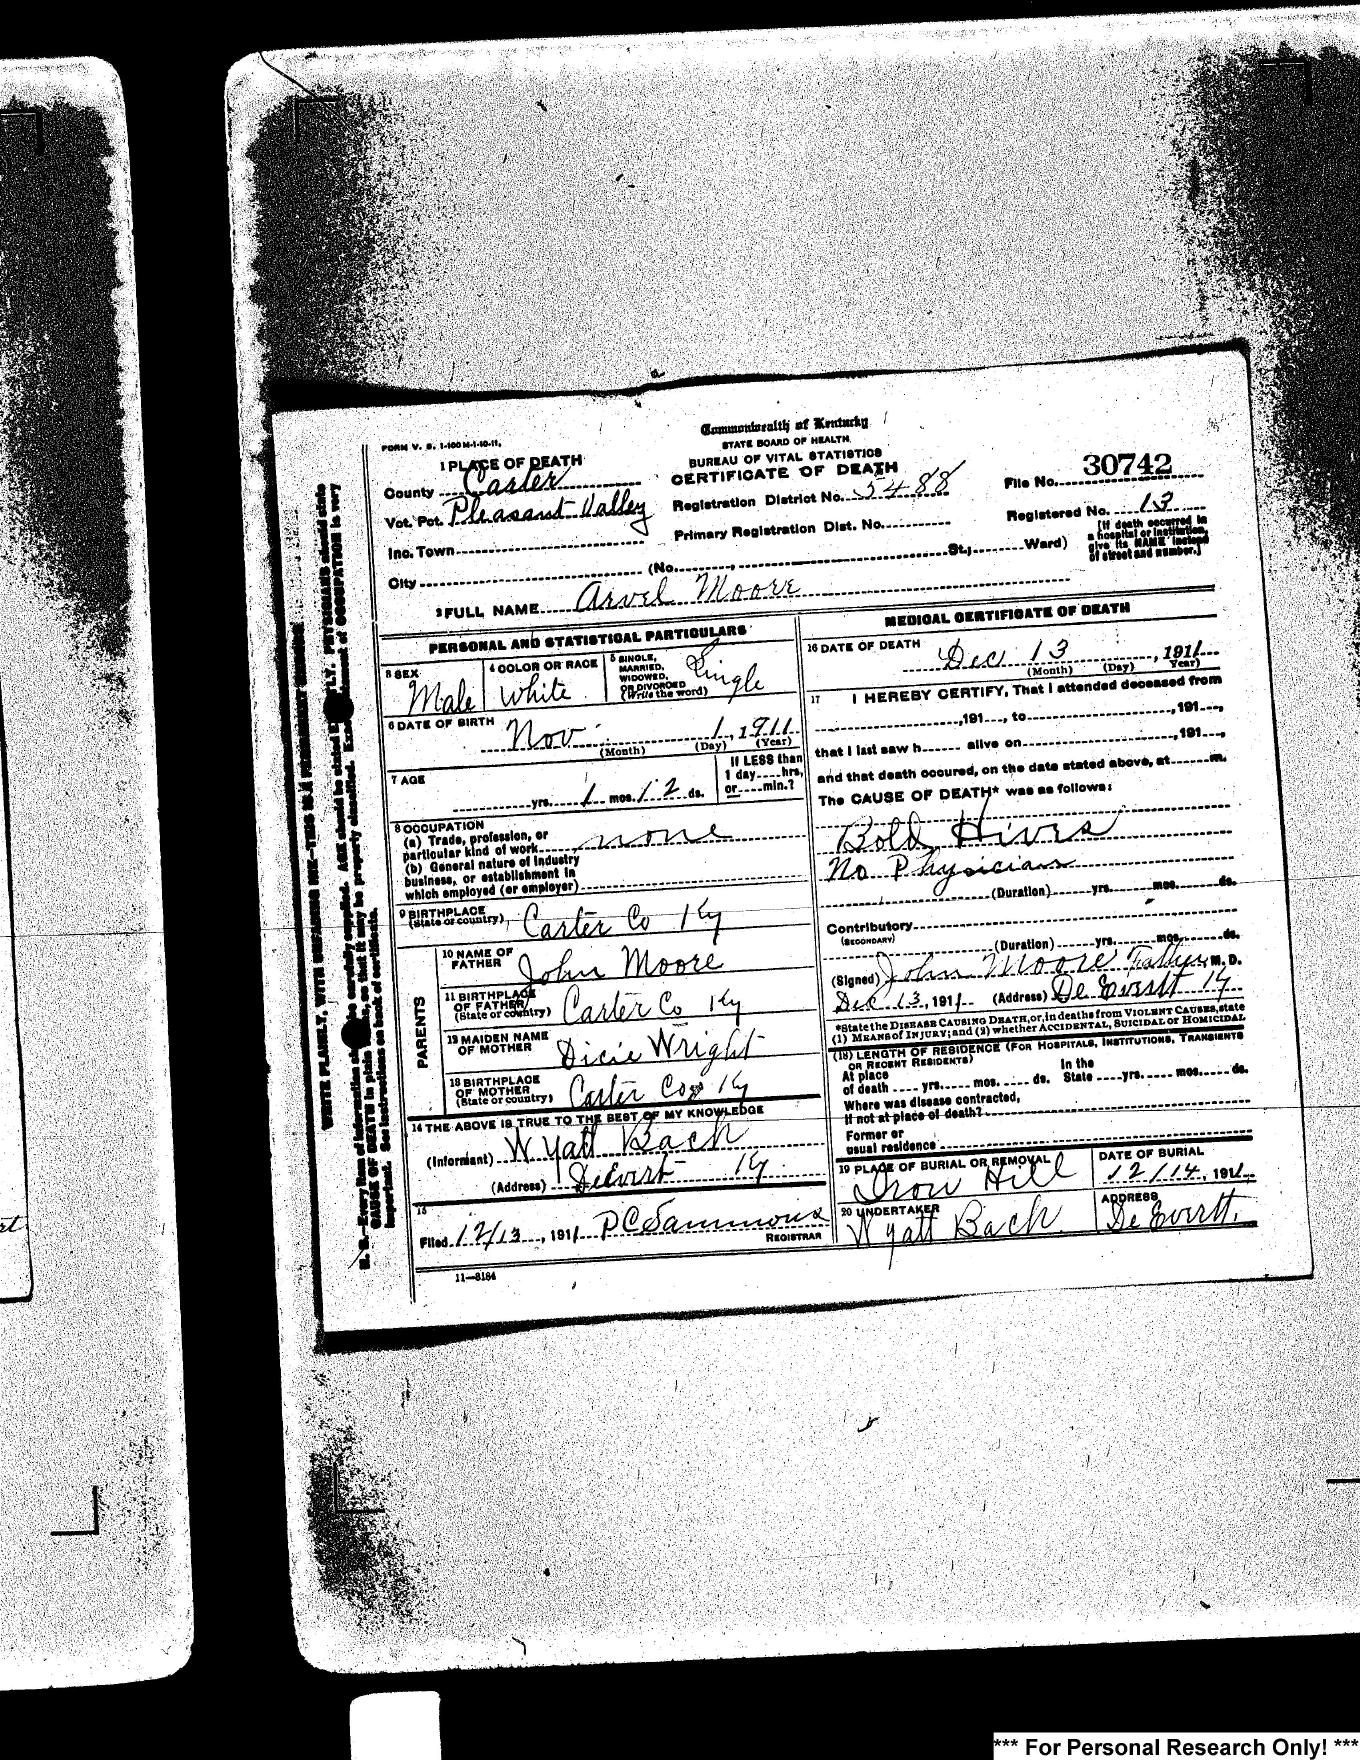 FORM V. S. 1-100 M-1-10-11.
Commonwealth of Kentucky
STATE BOARD OF HEALTH.
BUREAU OF VITAL STATISTICS
CERTIFICATE OF DEATH
1 PLACE OF DEATH
County Carter
Vot. Pct. Pleasant Valley
Inc. Town
City
Registration District No. 5488
Primary Registration Dist. No.
(No. , St.; Ward)
File No. 30742
Registered No. 13
[If death occurred in
a hospital or institution,
give its NAME instead
of street and number.]
2 FULL NAME Arvel Moore
PERSONAL AND STATISTICAL PARTICULARS
3 SEX
Male
4 COLOR OR RACE
White
5 SINGLE,
MARRIED,
WIDOWED,
OR DIVORCED
(Write the word)
Single
6 DATE OF BIRTH
Nov 1, 1911
(Month) (Day) (Year)
7 AGE
yrs. 1 mos. 12 ds.
If LESS than
1 day hrs,
or min.?
8 OCCUPATION
(a) Trade, profession, or
particular kind of work none
(b) General nature of industry
business, or establishment in
which employed (or employer)
9 BIRTHPLACE
(State or country) Carter Co Ky
PARENTS
10 NAME OF
FATHER John Moore
11 BIRTHPLACE
OF FATHER
(State or country) Carter Co Ky
12 MAIDEN NAME
OF MOTHER Dicie Wright
13 BIRTHPLACE
OF MOTHER
(State or country) Carter Co Ky
14 THE ABOVE IS TRUE TO THE BEST OF MY KNOWLEDGE
(Informant) Wyatt Bach
(Address) Ky
15
Filed 12/13, 1911 P C Sammons
REGISTRAR
11—3184
MEDICAL CERTIFICATE OF DEATH
16 DATE OF DEATH
Dec 13, 1911
(Month) (Day) Year)
17 I HEREBY CERTIFY, That I attended deceased from
,191 , to ,191 ,
that I last saw h alive on ,191 ,
and that death occured, on the date stated above, at m.
The CAUSE OF DEATH* was as follows:
Bold Hives
No Physician
(Duration) yrs. mos. ds.
Contributory
(SECONDARY)
(Duration) yrs. mos. ds.
(Signed) John Moore Father, M. D.
Dec 13, 1911 (Address) De Evertt Ky
*State the DISEASE CAUSING DEATH, or, in deaths from VIOLENT CAUSES, state
(1) MEANS of INJURY; and (2) whether ACCIDENTAL, SUICIDAL or HOMICIDAL
(18) LENGTH OF RESIDENCE (FOR HOSPITALS, INSTITUTIONS, TRANSIENTS
OR RECENT RESIDENTS)
At place In the
of death yrs. mos. ds. State yrs. mos. ds.
Where was disease contracted,
If not at place of death?
Former or
usual residence
19 PLACE OF BURIAL OR REMOVAL
Iron Hill
DATE OF BURIAL
12/14, 1911
20 UNDERTAKER
Wyatt Bach
ADDRESS
De Evertt.
WRITE PLAINLY, WITH UNFADING INK—THIS IS A PERMANENT
N. B.—Every item of information be carefully supplied. AGE should be stated PHYSICIANS should state
CAUSE OF DEATH in plain so that it may be properly classified. of OCCUPATION is very
important. See instructions on back of certificate.
*** For Personal Research Only! ***